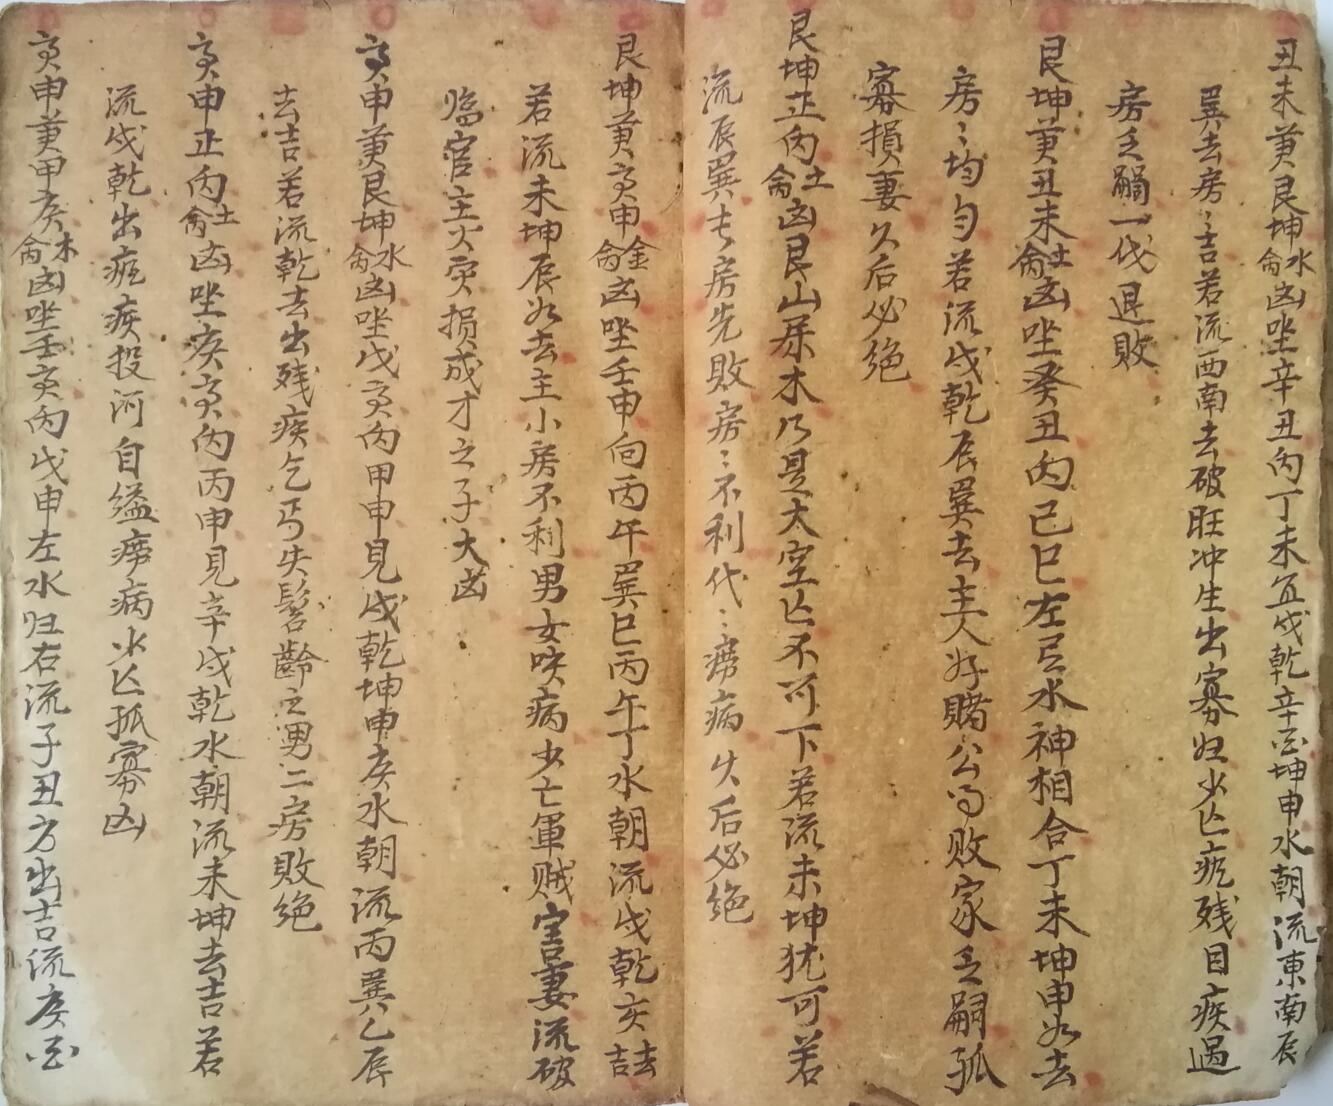 丑未兼艮坤水禽凶坐辛丑丙丁未宜戌乾辛酉坤申水朝流東南辰
巽去房〻吉若流西南去破旺冲生出寡妇少亡疾残目疾過
房乏嗣一代退敗
艮坤兼丑未土禽凶坐癸丑丙己巳左右水神相合丁未坤申水去
房〻均匀若流戌乾辰巽去主人好賭公司败家乏嗣孤
寡損妻久后必绝
艮坤正丙土禽凶艮山屬木乃是大空亡不可下若流未坤犹可若
流辰巽去房先敗房〻不利代〻癆病久后必绝
艮坤兼寅申金禽凶坐壬申向丙午巽巳丙午丁水朝流戌乾亥去吉
若流未坤辰水去主小房不利男女咲病少亡軍贼害妻流破
临官主火灾损成才之子大凶
寅申兼艮坤水禽凶坐戊寅丙甲申見戌乾坤申庚水朝流丙巽乙辰
去吉若流乾去出残疾乞丐失髫齡之男二房敗绝
寅申正丙土禽凶坐庚寅丙丙申見辛戌乾水朝流未坤去吉若
流戌乾出疾投河自缢癆病少亡孤寡凶
寅申兼甲庚木禽凶坐壬寅丙戊申左水归右流子丑方出吉流庚酉